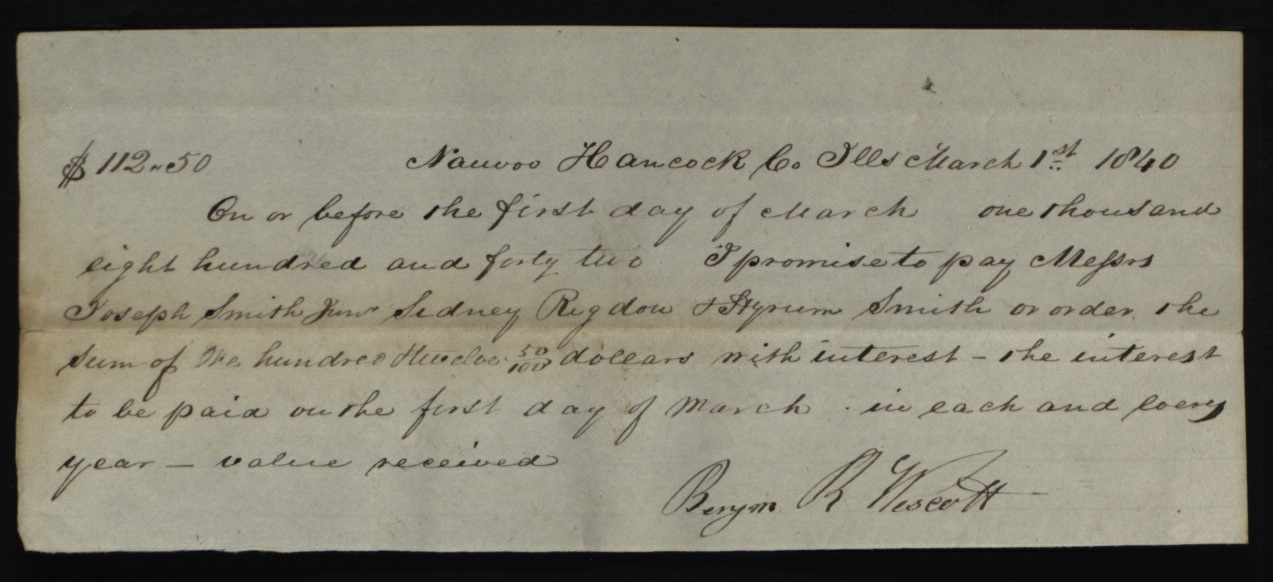 $112.50 Nauvoo Hancock Co Ills March 1st 1840
On or before the first day of March one thousand
eight hundred and forty two I promise to pay Messrs
Joseph Smith Junr Sidney Rigdon & Hyrum Smith or order the
sum of One hundred & twelve 50/100 dollears with interest - the interest
to be paid on the first day of March . in each and every
year - value received
Benjm R Wescott